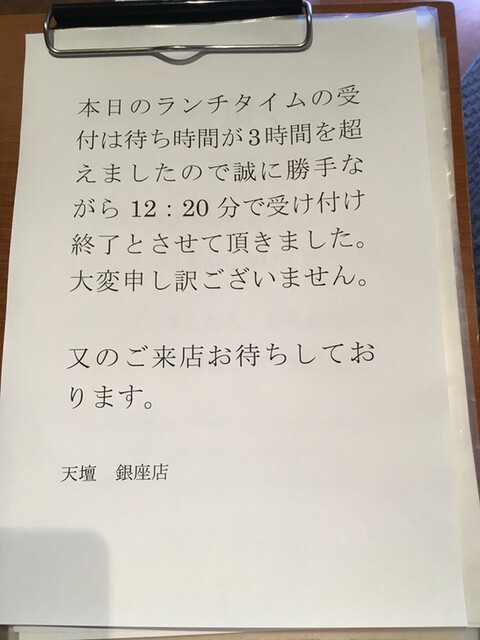 本日のランチタイムの受
付は待ち時間が3時間を超
えましたので誠に勝手な
がら 12：20 分で受け付け
終了とさせて頂きました。
大変申し訳ございません。
又のご来店お待ちしてお
ります。
天壇　銀座店